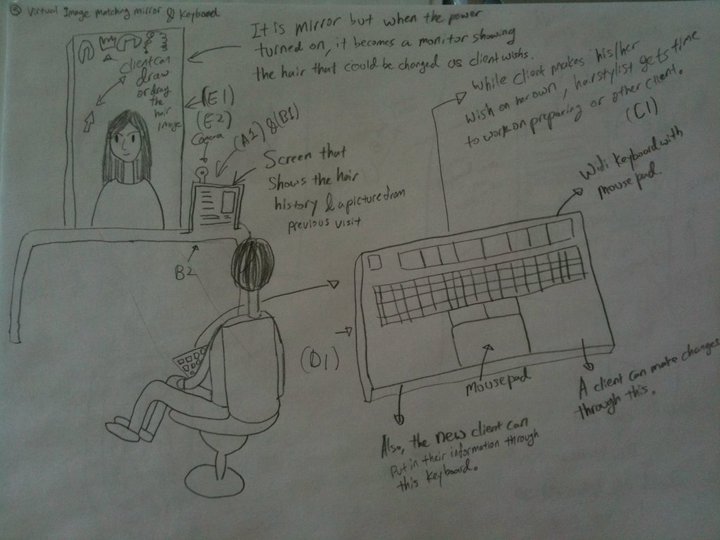 ③ Virtual Image matching mirror & Keyboard
It is mirror but when the power
turned on, it becomes a monitor showing
the hair that could be changed as client wishs.
client can
draw
or drag
the
hair
image
(E1)
(E2)
Camera
(A1) & (B1)
Screen that
shows the hair
history & a picture from
previous visit
B2
While client makes his/her
wish on her own, hairstylist gets time
to work on preparing or other client.
(C1)
Wifi keyboard with
mouse pad.
(D1)
Mousepad
Also, the new client can
put in their information through
this keyboard.
A client can make changes
through this.